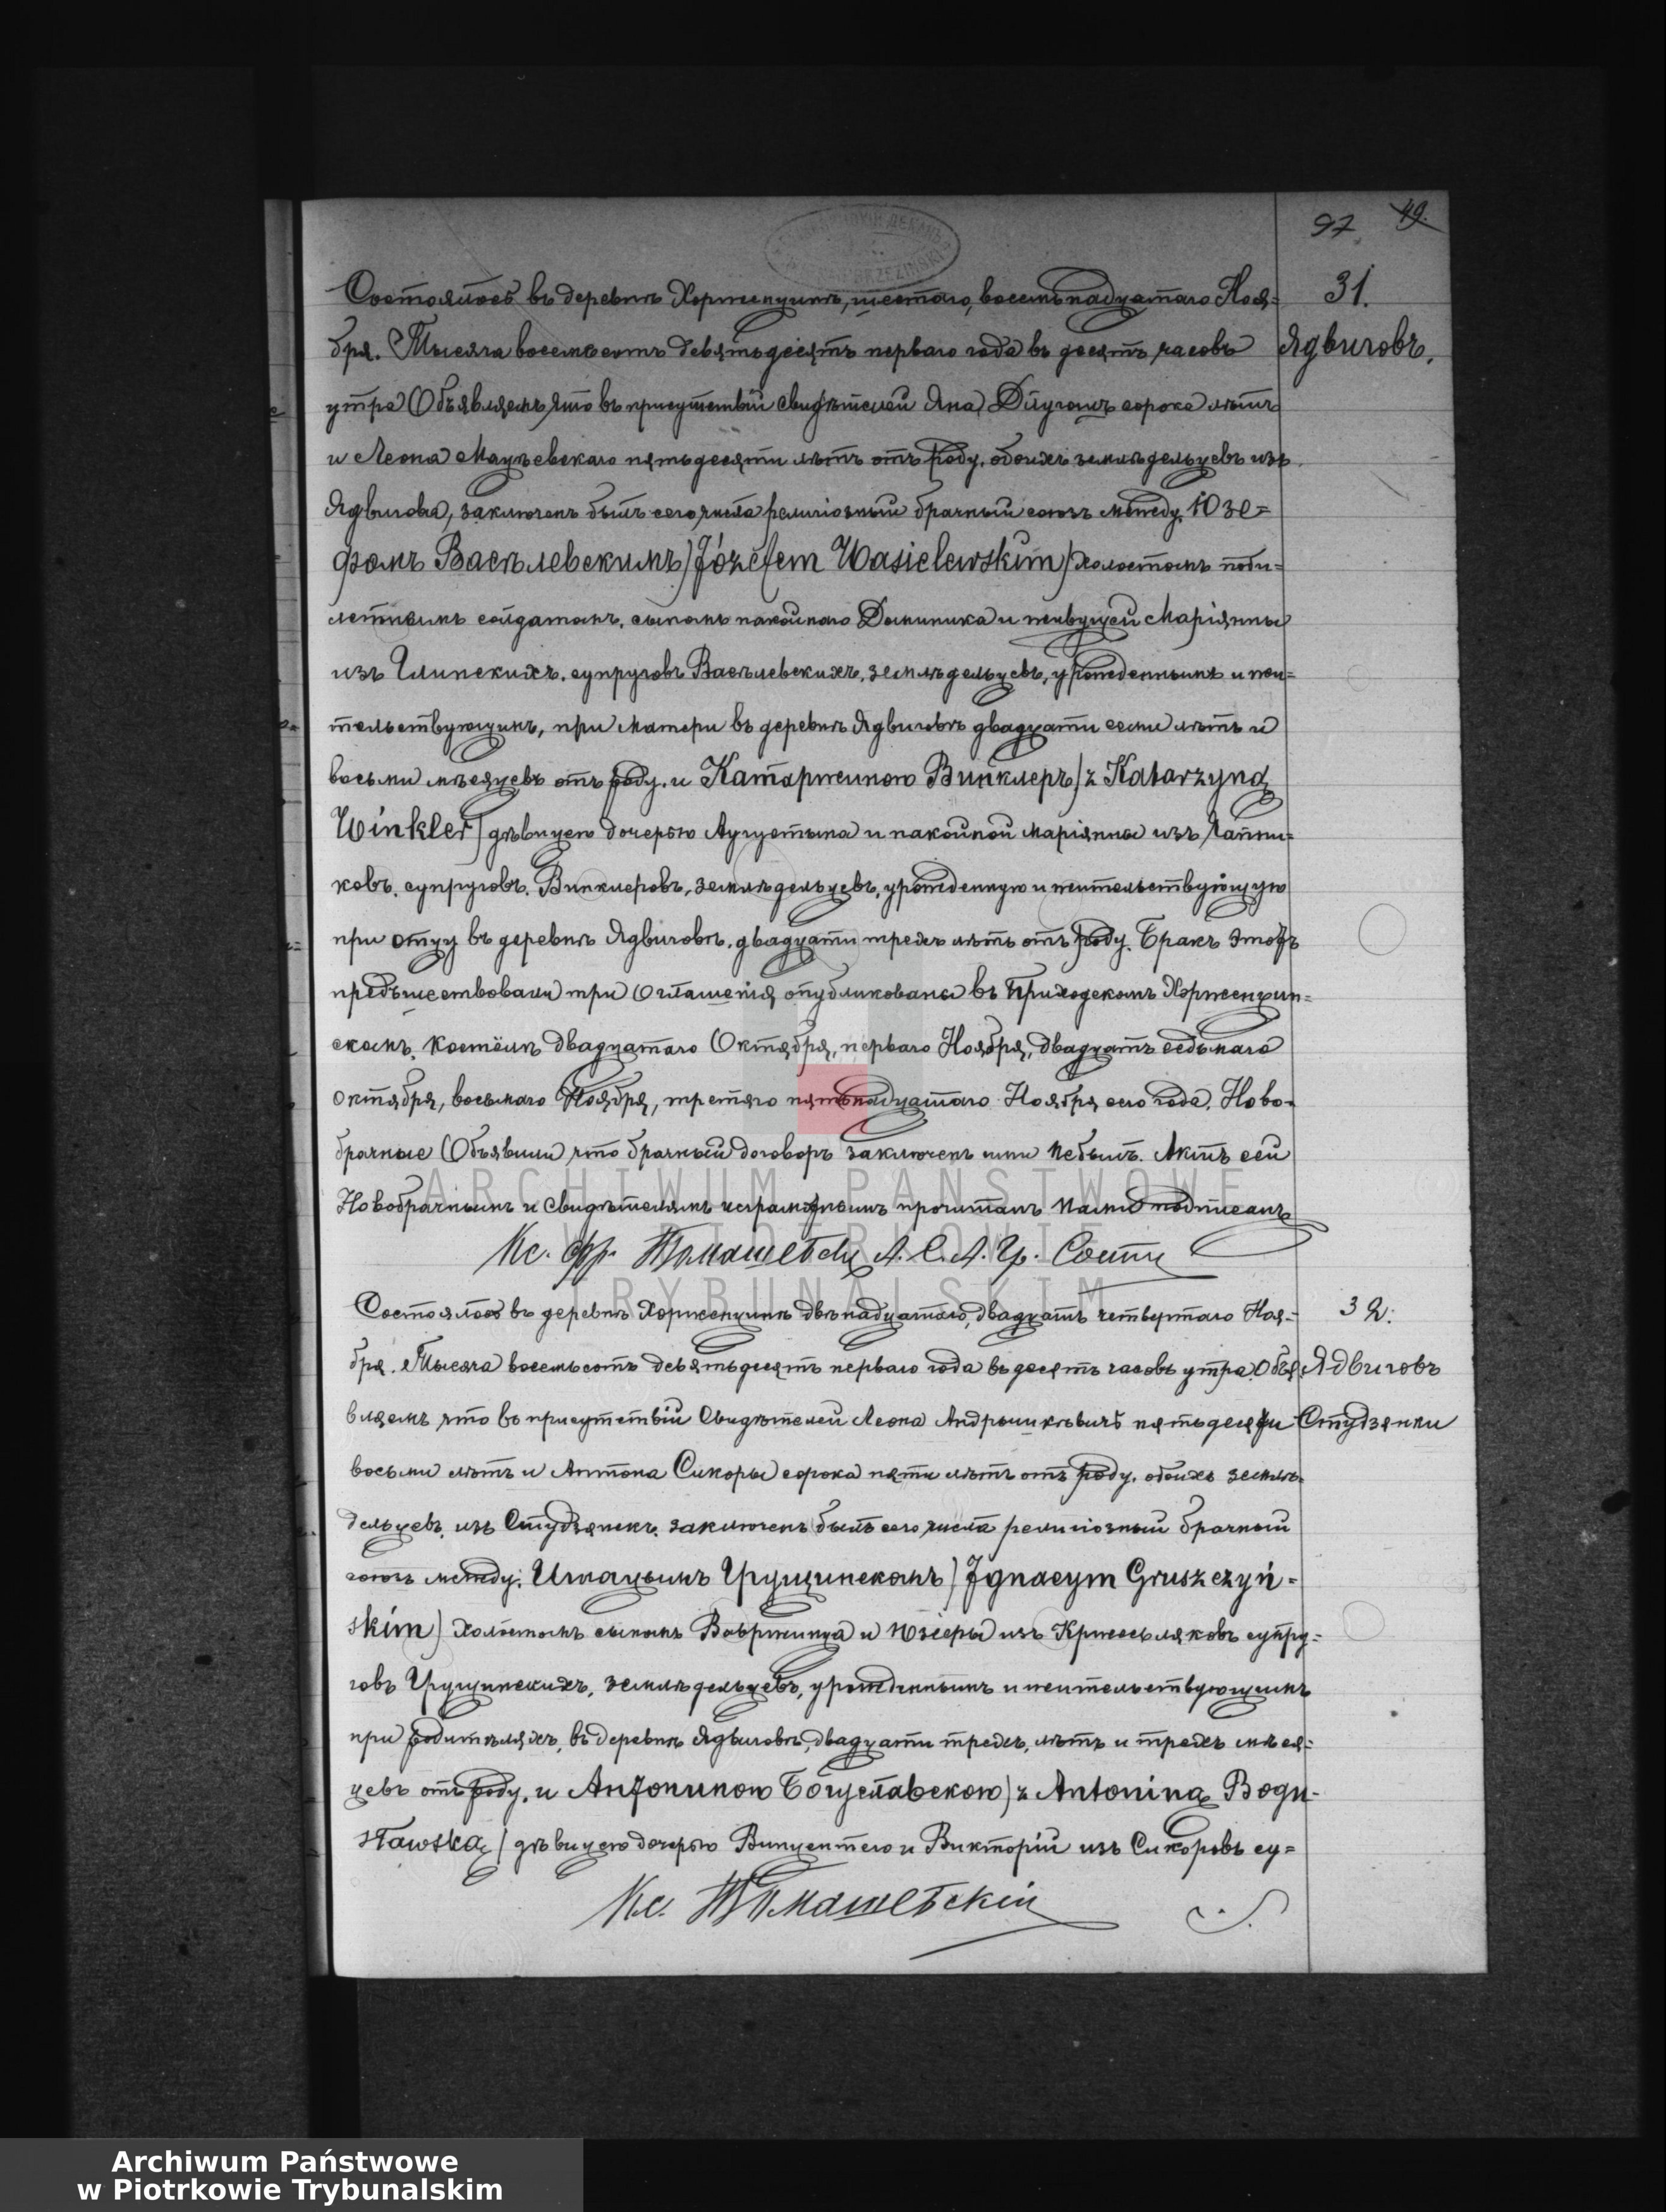 97 49.
31.
Ядвиговъ.
Состоялось въ деревнѣ Хорженцинѣ, шестаго, восемьнадцатаго Ноя=
бря. Тысяча восемьсотъ девятьдесятъ перваго года въ десять часовъ
утра Объявляемъ, что въ присутствіи свидѣтелей Яна Длугошъ сорока лѣтъ
и Леона Мацѣевскаго пятьдесяти лѣтъ отъ роду, обоихъ земледѣльцевъ изъ
Ядвигова, заключенъ былъ сего числа религіозный брачный союзъ между, Юзе=
фомъ Васѣлевскимъ) Józefem Wasielewskim) холостымъ
солдатомъ, сыномъ покойнаго Доминика и живущей Маріянны
изъ Глинскихъ, супруговъ Васѣлевскихъ, земледѣльцевъ, урожденнымъ и жи=
тельствующимъ, при матери въ деревнѣ Ядвиговѣ двадцати семи лѣтъ и
восьми мѣсяцевъ отъ роду, и Катаржиною Винклеръ) z Katarzyną
Winkler) дѣвицею дочерью Аугустына и покойной Маріянны изъ
ковъ, супруговъ Винклеровъ, земледѣльцевъ, урожденную и жительствующую
при отцу въ деревнѣ Ядвиговѣ, двадцати трехъ лѣтъ отъ роду. Бракъ этотъ
предшествовали три Оглашенія опубликованы въ Приходскомъ Хорженцин=
скомъ, костёлѣ двадцатаго Октября, перваго Ноября, двадцать седьмаго
октября, восьмаго Ноября, третяго пятьнадцатаго Ноября сего года. Ново=
брачные Объявили что брачный договоръ заключенъ ими небылъ. Актъ сей
Новобрачнымъ и Свидѣтелямъ неграмотнымъ прочитанъ Нами подписанъ
Кс. Фр. Томашевскій А. С. А. Гр. Сост.
32.
Ядвиговъ
Студзянки
Состоялось въ деревнѣ Хорженцинѣ двѣнадцатаго, двадцать четвертаго Ноя=
бря. Тысяча восемьсотъ девятьдесятъ перваго года въ десять часовъ утра. Объя
вляемъ что въ присутствіи Свидѣтелей Леона Андрышкѣвичъ пятьдесяти
восьми лѣтъ и Антона Сикоры сорока пяти лѣтъ отъ роду, обоихъ земле=
дѣльцевъ, изъ Студзянекъ, заключенъ былъ сего числа религіозный брачный
союзъ между: Игнацымъ Грущинскомъ) Ignacym Gruszczyń=
skim) холостымъ сыномъ Вавржинца и Юзефы изъ супру=
говъ Грущинскихъ, земледѣльцевъ, урожденнымъ и жительствующимъ
при родителяхъ, въ деревнѣ Ядвиговѣ, двадцати трехъ, лѣтъ и трехъ мѣся=
цевъ отъ роду, и Антониною Богуславскою) z Antoniną Bogu=
sławską) дѣвицею дочерью Винцентего и Викторіи изъ Сикоровъ су=
Кс. Томашевскій
ARCHIWUM PAŃSTWOWE
W PIOTRKOWIE
TRYBUNALSKIM
Archiwum Państwowe
w Piotrkowie Trybunalskim